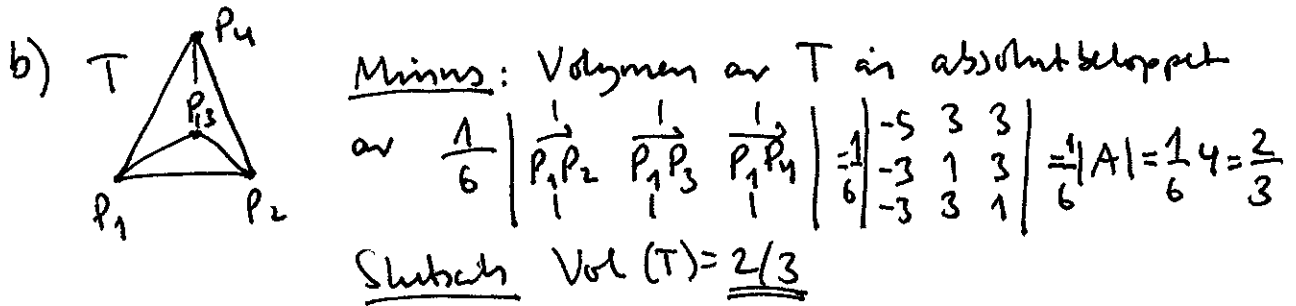 b) T P₄ P₃ P₁ P₂
Minns: Volymen av T är absolutbeloppet
av 1/6 | P₁P₂ P₁P₃ P₁P₄ | = 1/6 | -5 3 3 ; -3 1 3 ; -3 3 1 | = 1/6 |A| = 1/6 4 = 2/3
Slutsats Vol (T) = 2/3